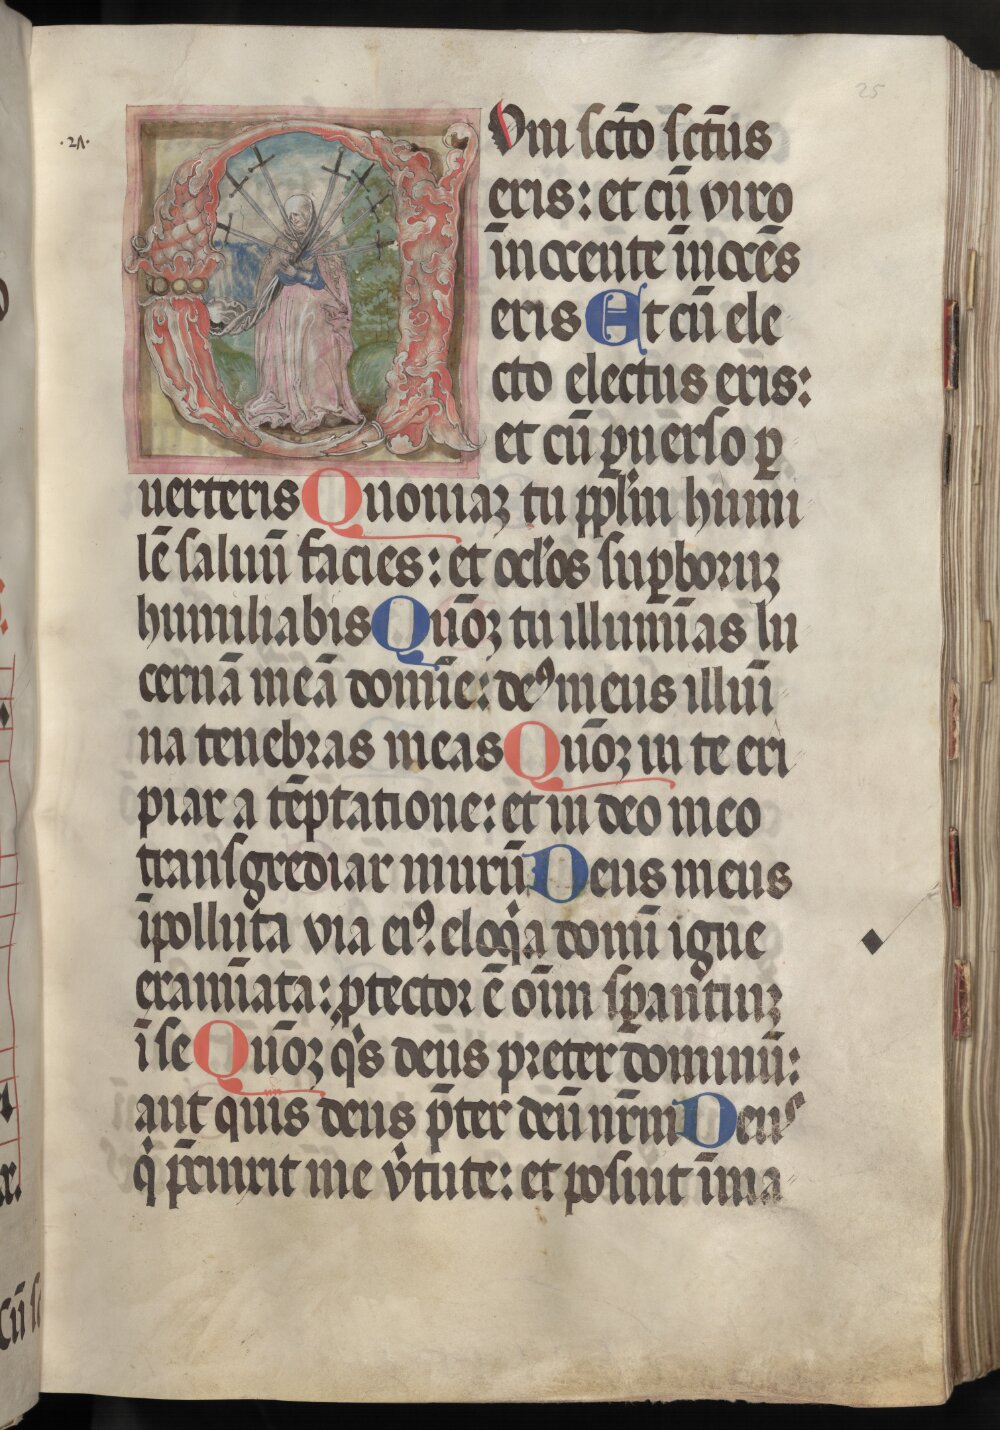 25
·2Λ·
Cum sc̄to sc̄tus
eris: et cū viro
īnocente īnocēs
eris Et cū ele
cto electus eris:
et cū ꝑuerso ꝑ
uerteris Quoniaꝫ tu pplm̄ humi
lē saluū facies: et oclōs suꝑboruꝫ
humiliabis Quōꝫ tu illumīas lu
cernā meā domīe: deꝰ meus illūi
na tenebras meas Quōꝫ in te eri
piar a tēptatione: et in deo meo
transgrediar murū Deus meus
īpolluta via eiꝰ: eloq̄a domī igne
examīata: ꝓtector ē oīm sꝑantiuꝫ
ī se Quōꝫ qͥs deus preter dominū:
aut quis deus p̄ter deū nr̄m Deus
qͥ p̄cinxit me v̄tute: et posuit īma